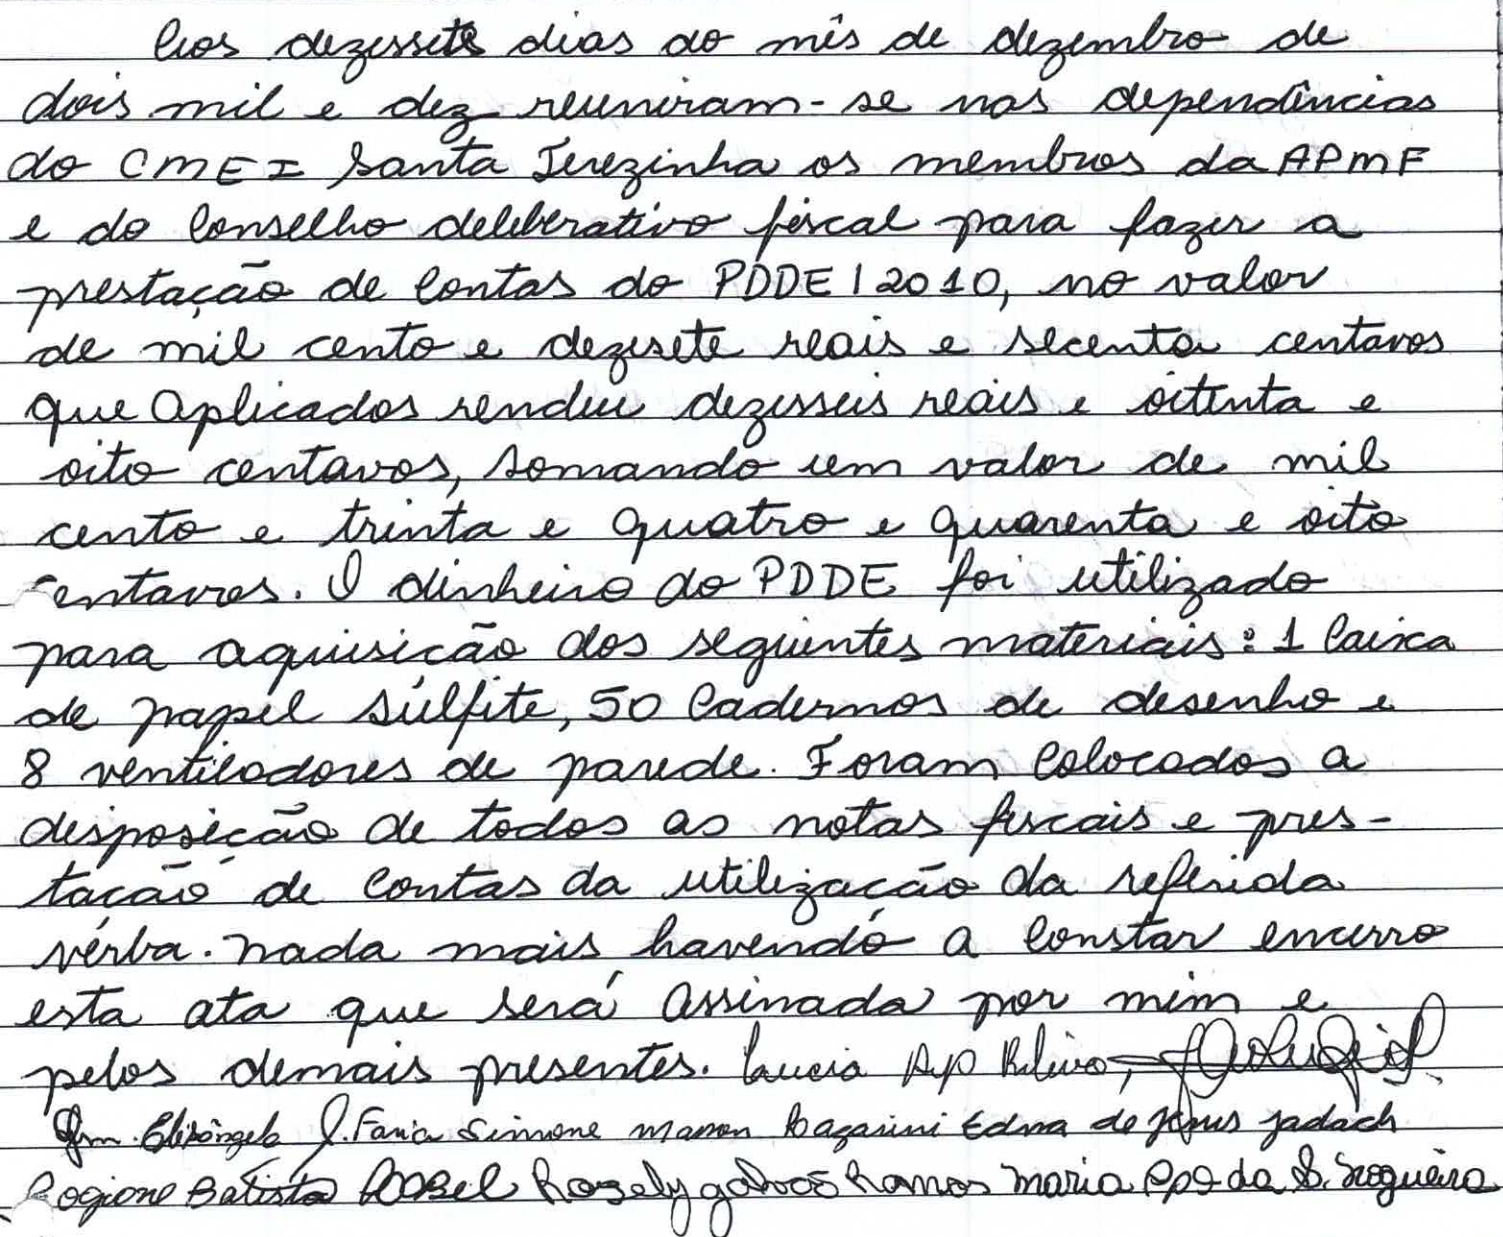 Aos dezessete dias do mês de dezembro de
dois mil e dez reuniram-se nas dependências
do CMEI Santa Terezinha os membros da APMF
e do Conselho deliberativo fiscal para fazer a
prestação de Contas do PDDE/2010, no valor
de mil cento e dezesete reais e secenta centavos
que Aplicados rendeu dezesseis reais e oitenta e
oito centavos, somando um valor de mil
cento e trinta e quatro e quarenta e oito
centavos. O dinheiro do PDDE foi utilizado
para aquisição dos seguintes materiais: 1 Caixa
de papel súlfite, 50 Cadernos de desenho e
8 ventiladores de parede. Foram Colocados a
disposição de todos as notas fiscais e pres-
tação de Contas da utilização da referida
vérba. Nada mais havendo a Constar encerro
esta ata que será Assinada por mim e
pelos demais presentes. Lucia Ap Ribeiro,
Elisângela J. Faria Simone Edna de Jesus
Batista Rosely Galvão Ramos Maria da S. Nogueira